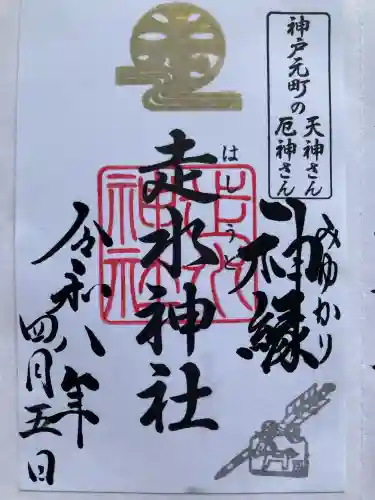 神戸元町の
天神さん
厄神さん
神縁
みゆかり
走水神社
はしうど
走水
神社
令和八年
四月五日